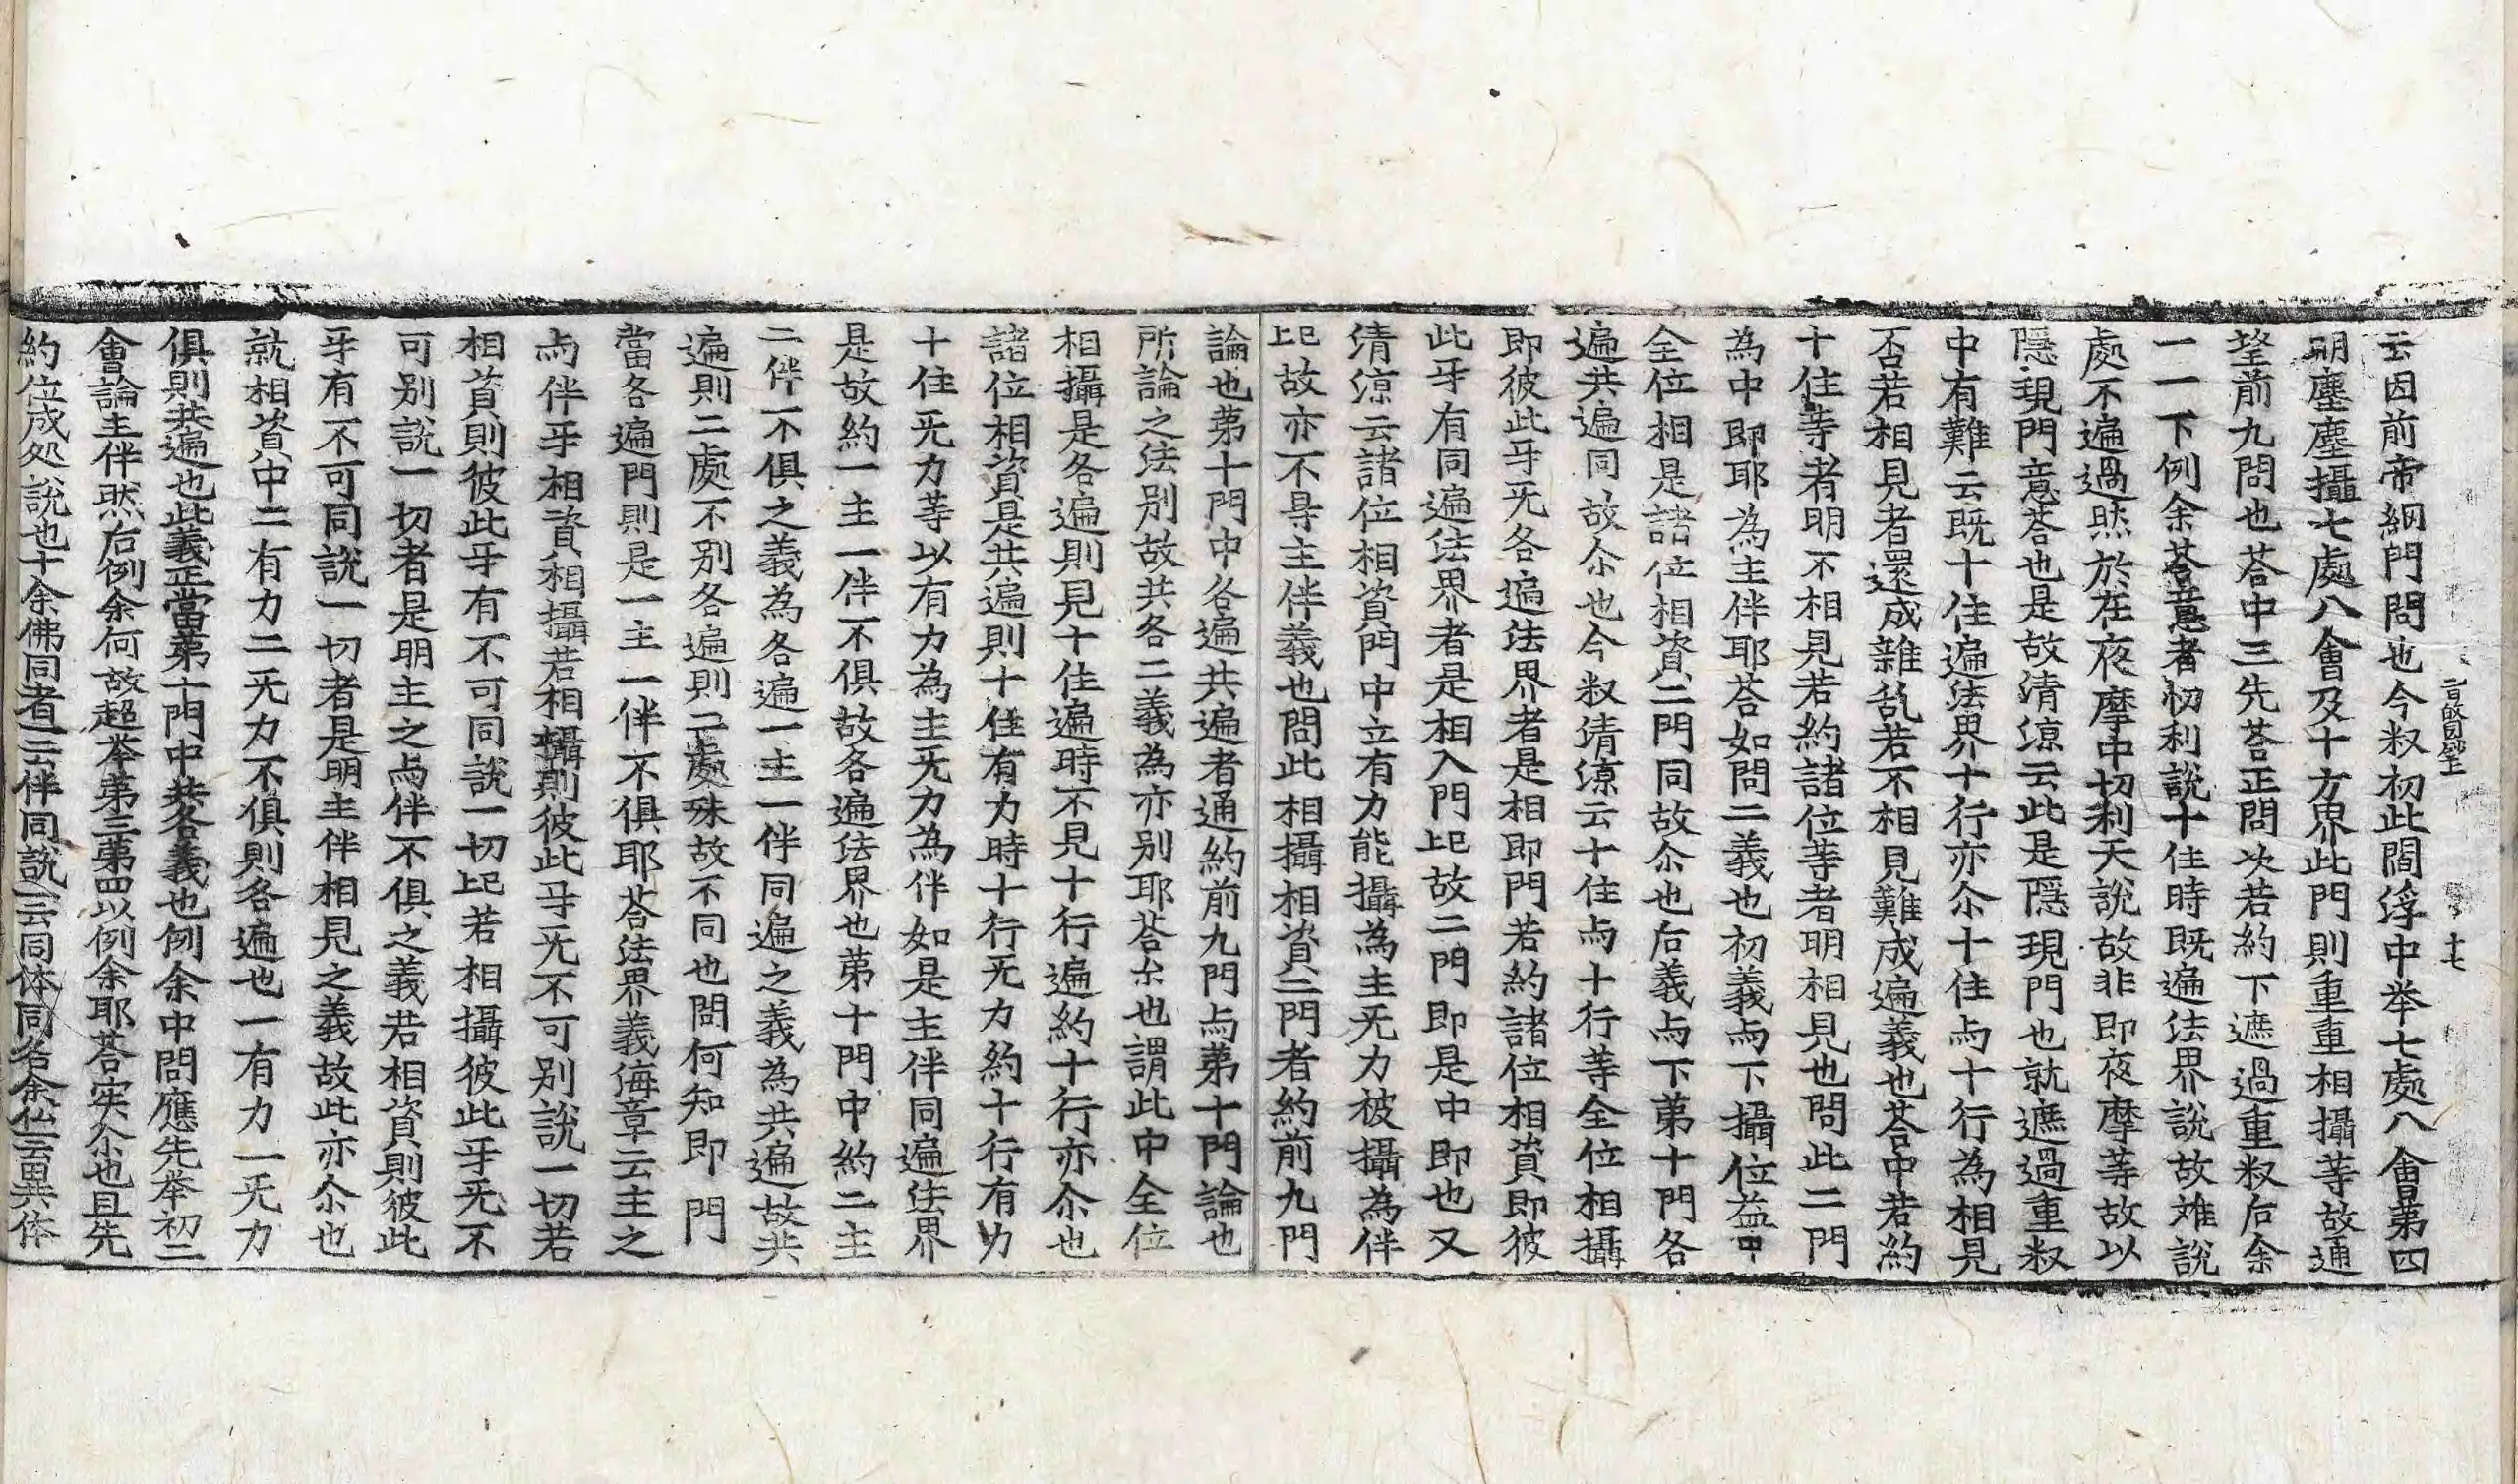 云因前帝網門問也今叙初此閻浮中举七處八會第四
明塵塵攝七處八會及十方界此門則重重相攝等故通
望前九問也荅中三先荅正問次若約下遮過重叙后余
一一下例余荅意者忉利說十住時既遍法界說故难說
處不遍過然於在夜摩中切利天說故非即夜摩等故以
隱現門意荅也是故清涼云此是隱現門也就遮過重叙
中有難云既十住遍法界十行亦尒十住与十行為相見
否若相見者還成雜乱若不相見難成遍義也荅中若約
十住等者明不相見若約諸位等者明相見也問此二門
為中即耶為主伴耶荅如問二義也初義与下攝位益中
全位相是諸位相資二門同故尒也后義与下第十門各
遍共遍同故尒也今叙清涼云十住与十行等全位相攝
即彼此牙旡各遍法界者是相即門若約諸位相資即彼
此牙有同遍法界者是相入門㠯故二門即是中即也又
清涼云諸位相資門中立有力能攝為主旡力被攝為伴
㠯故亦不㝵主伴義也問此相攝相資二門者約前九門
論也第十門中各遍共遍者通約前九門与第十門論也
所論之法別故共各二義為亦別耶荅尒也謂此中全位
相攝是各遍則見十住遍時不見十行遍約十行亦尒也
諸位相資是共遍則十住有力時十行旡力約十行有力
十住旡力等以有力為主旡力為伴如是主伴同遍法界
是故約一主一伴不俱故各遍法界也第十門中約二主
二伴不俱之義為各遍一主一伴同遍之義為共遍故共
遍則二處不別各遍則二處殊故不同也問何知即門
當各遍門則是一主一伴不俱耶荅法界義海章云主之
与伴牙相資相攝若相攝則彼此牙旡不可别說一切若
相資則彼此牙有不可同說一切㠯若相攝彼此牙旡不
可别說一切者是明主之与伴不俱之義若相資則彼此
牙有不可同說一切者是明主伴相見之義故此亦尒也
就相資中二有力二旡力不俱則各遍也一有力一旡力
俱則共遍也此義正當第十門中共各義也例余中問應先举初二
會論主伴然后例余何故超举第三第四以例余耶荅实尒也且先
約位成処說也十余佛同者一云伴同說二云同体同名余仏云異体